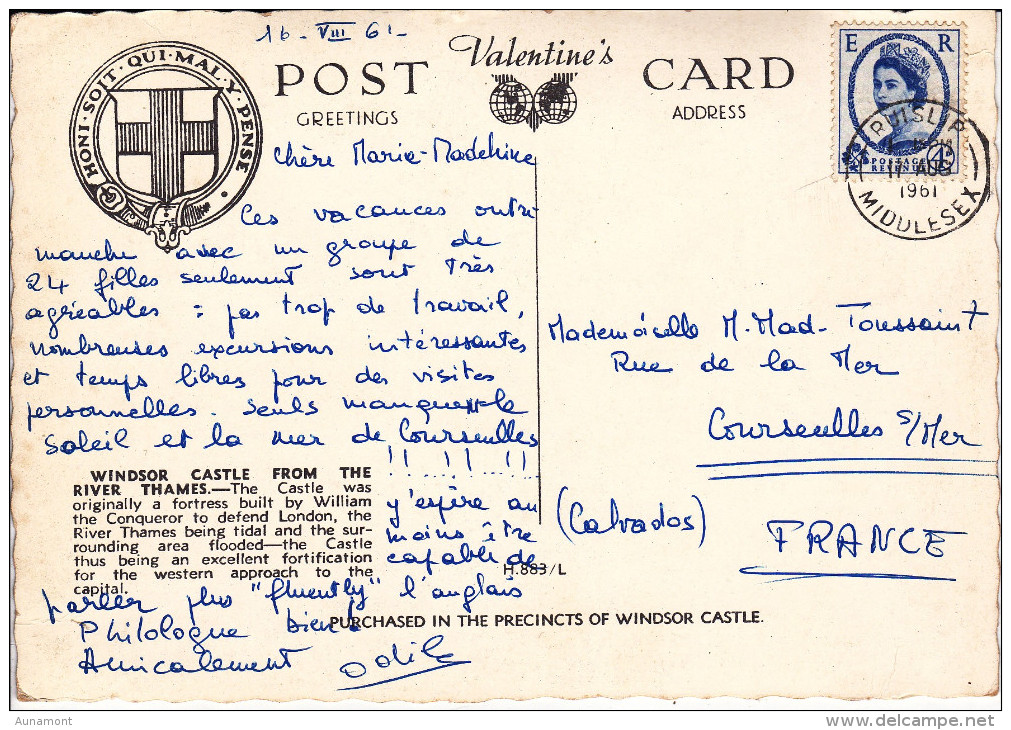 16 - VIII 61 -
HONI · SOIT · QUI · MAL · Y · PENSE ·
POST
GREETINGS
Valentine's
CARD
ADDRESS
E R
POSTAGE
REVENUE
4D
RUISLIP
17 AUG
1961
MIDDLESEX
Chère Marie-Madeleine
Ces vacances outre
manche avec un groupe de
24 filles seulement sont très
agréables : pas trop de travail,
nombreuses excursions intéressantes
et temps libres pour des visites
personnelles. Seuls manquent le
soleil et la mer de Courseulles
!! !! !!
y'espère au
moins être
capable de
parler plus "fluently" l'anglais
Philologue bientôt
Amicalement Odile
WINDSOR CASTLE FROM THE
RIVER THAMES.—The Castle was
originally a fortress built by William
the Conqueror to defend London, the
River Thames being tidal and the sur-
rounding area flooded—the Castle
thus being an excellent fortification
for the western approach to the
capital.
H.883/L
PURCHASED IN THE PRECINCTS OF WINDSOR CASTLE.
Mademoiselle M. Mad- Toussaint
Rue de la Mer
Courseulles s/Mer
(Calvados)
FRANCE
Aunamont
delcampe.net